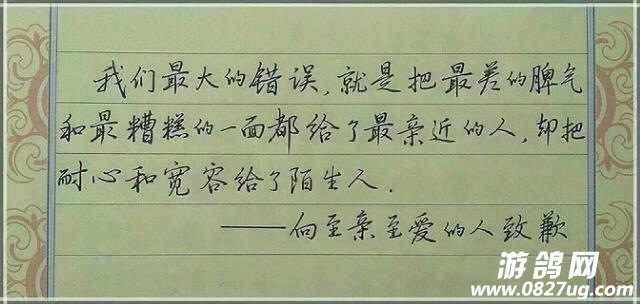 我们最大的错误,就是把最差的脾气
和最糟糕的一面都给了最亲近的人,却把
耐心和宽容给了陌生人.
——向至亲至爱的人致歉
游鸽网
www.0827ug.com